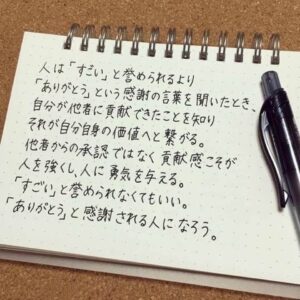 人は「すごい」と誉められるより
「ありがとう」という感謝の言葉を聞いたとき、
自分が他者に貢献できたことを知り
それが自分自身の価値へと繋がる。
他者からの承認ではなく貢献感こそが
人を強くし、人に勇気を与える。
「すごい」と誉められなくてもいい。
「ありがとう」と感謝される人になろう。